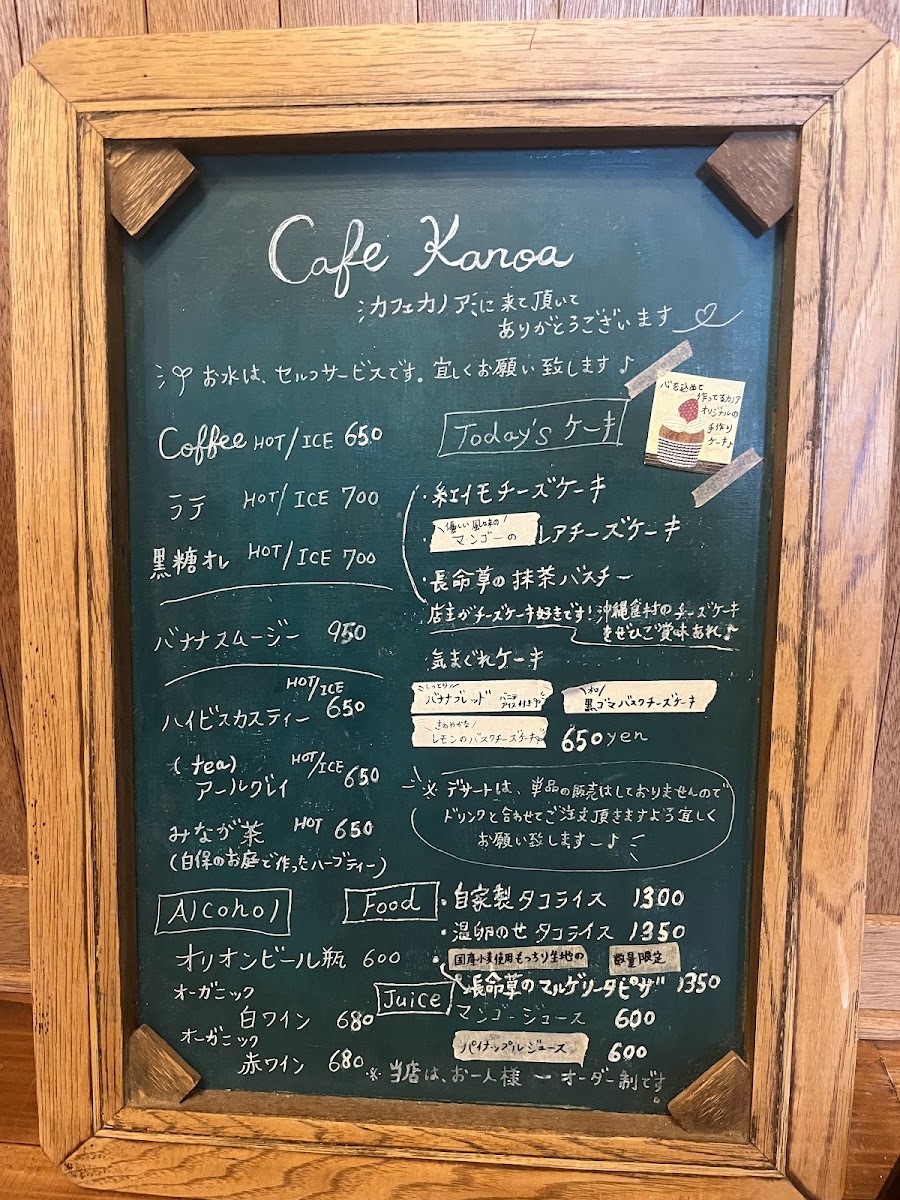 Cafe Kanoa
カフェカノアに来て頂いて
ありがとうございます
お水は、セルフサービスです。宜しくお願い致します♪
Coffee HOT/ICE 650
ラテ HOT/ICE 700
黒糖オレ HOT/ICE 700
バナナスムージー 950
HOT/ICE
ハイビスカスティー 650
(tea) HOT/ICE
アールグレイ 650
みなが茶 HOT 650
(白保のお庭で作ったハーブティー)
Alcohol
オリオンビール瓶 600
オーガニック
白ワイン 680
オーガニック
赤ワイン 680
Today's ケーキ
心を込めて
作ってるカノア
オリジナルの
手作り
ケーキ♪
・紅イモチーズケーキ
優しい風味の
・マンゴーのレアチーズケーキ
・長命草の抹茶バスチー
店主がチーズケーキ好きです!沖縄食材のチーズケーキ
をぜひご賞味あれ♪
気まぐれケーキ
しっとり
バナナブレッド バニラ
アイス付き
和
黒ゴマバスクチーズケーキ
さわやかな
レモンのバスクチーズケーキ
650yen
※デザートは、単品の販売はしておりませんので
ドリンクと合わせてご注文頂きますよう宜しく
お願い致しますー♪
Food
・自家製タコライス 1300
・温卵のせタコライス 1350
・国産小麦使用もっちり生地の 数量限定
長命草のマルゲリータピザ 1350
Juice
マンゴージュース 600
パイナップルジュース 600
※当店は、お一人様一オーダー制です